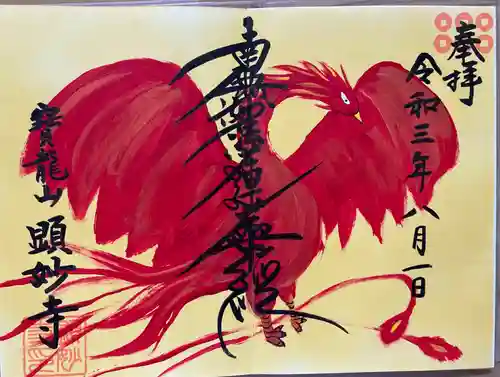 奉拝
令和三年八月一日
南無妙法蓮華経
寶龍山 顕妙寺